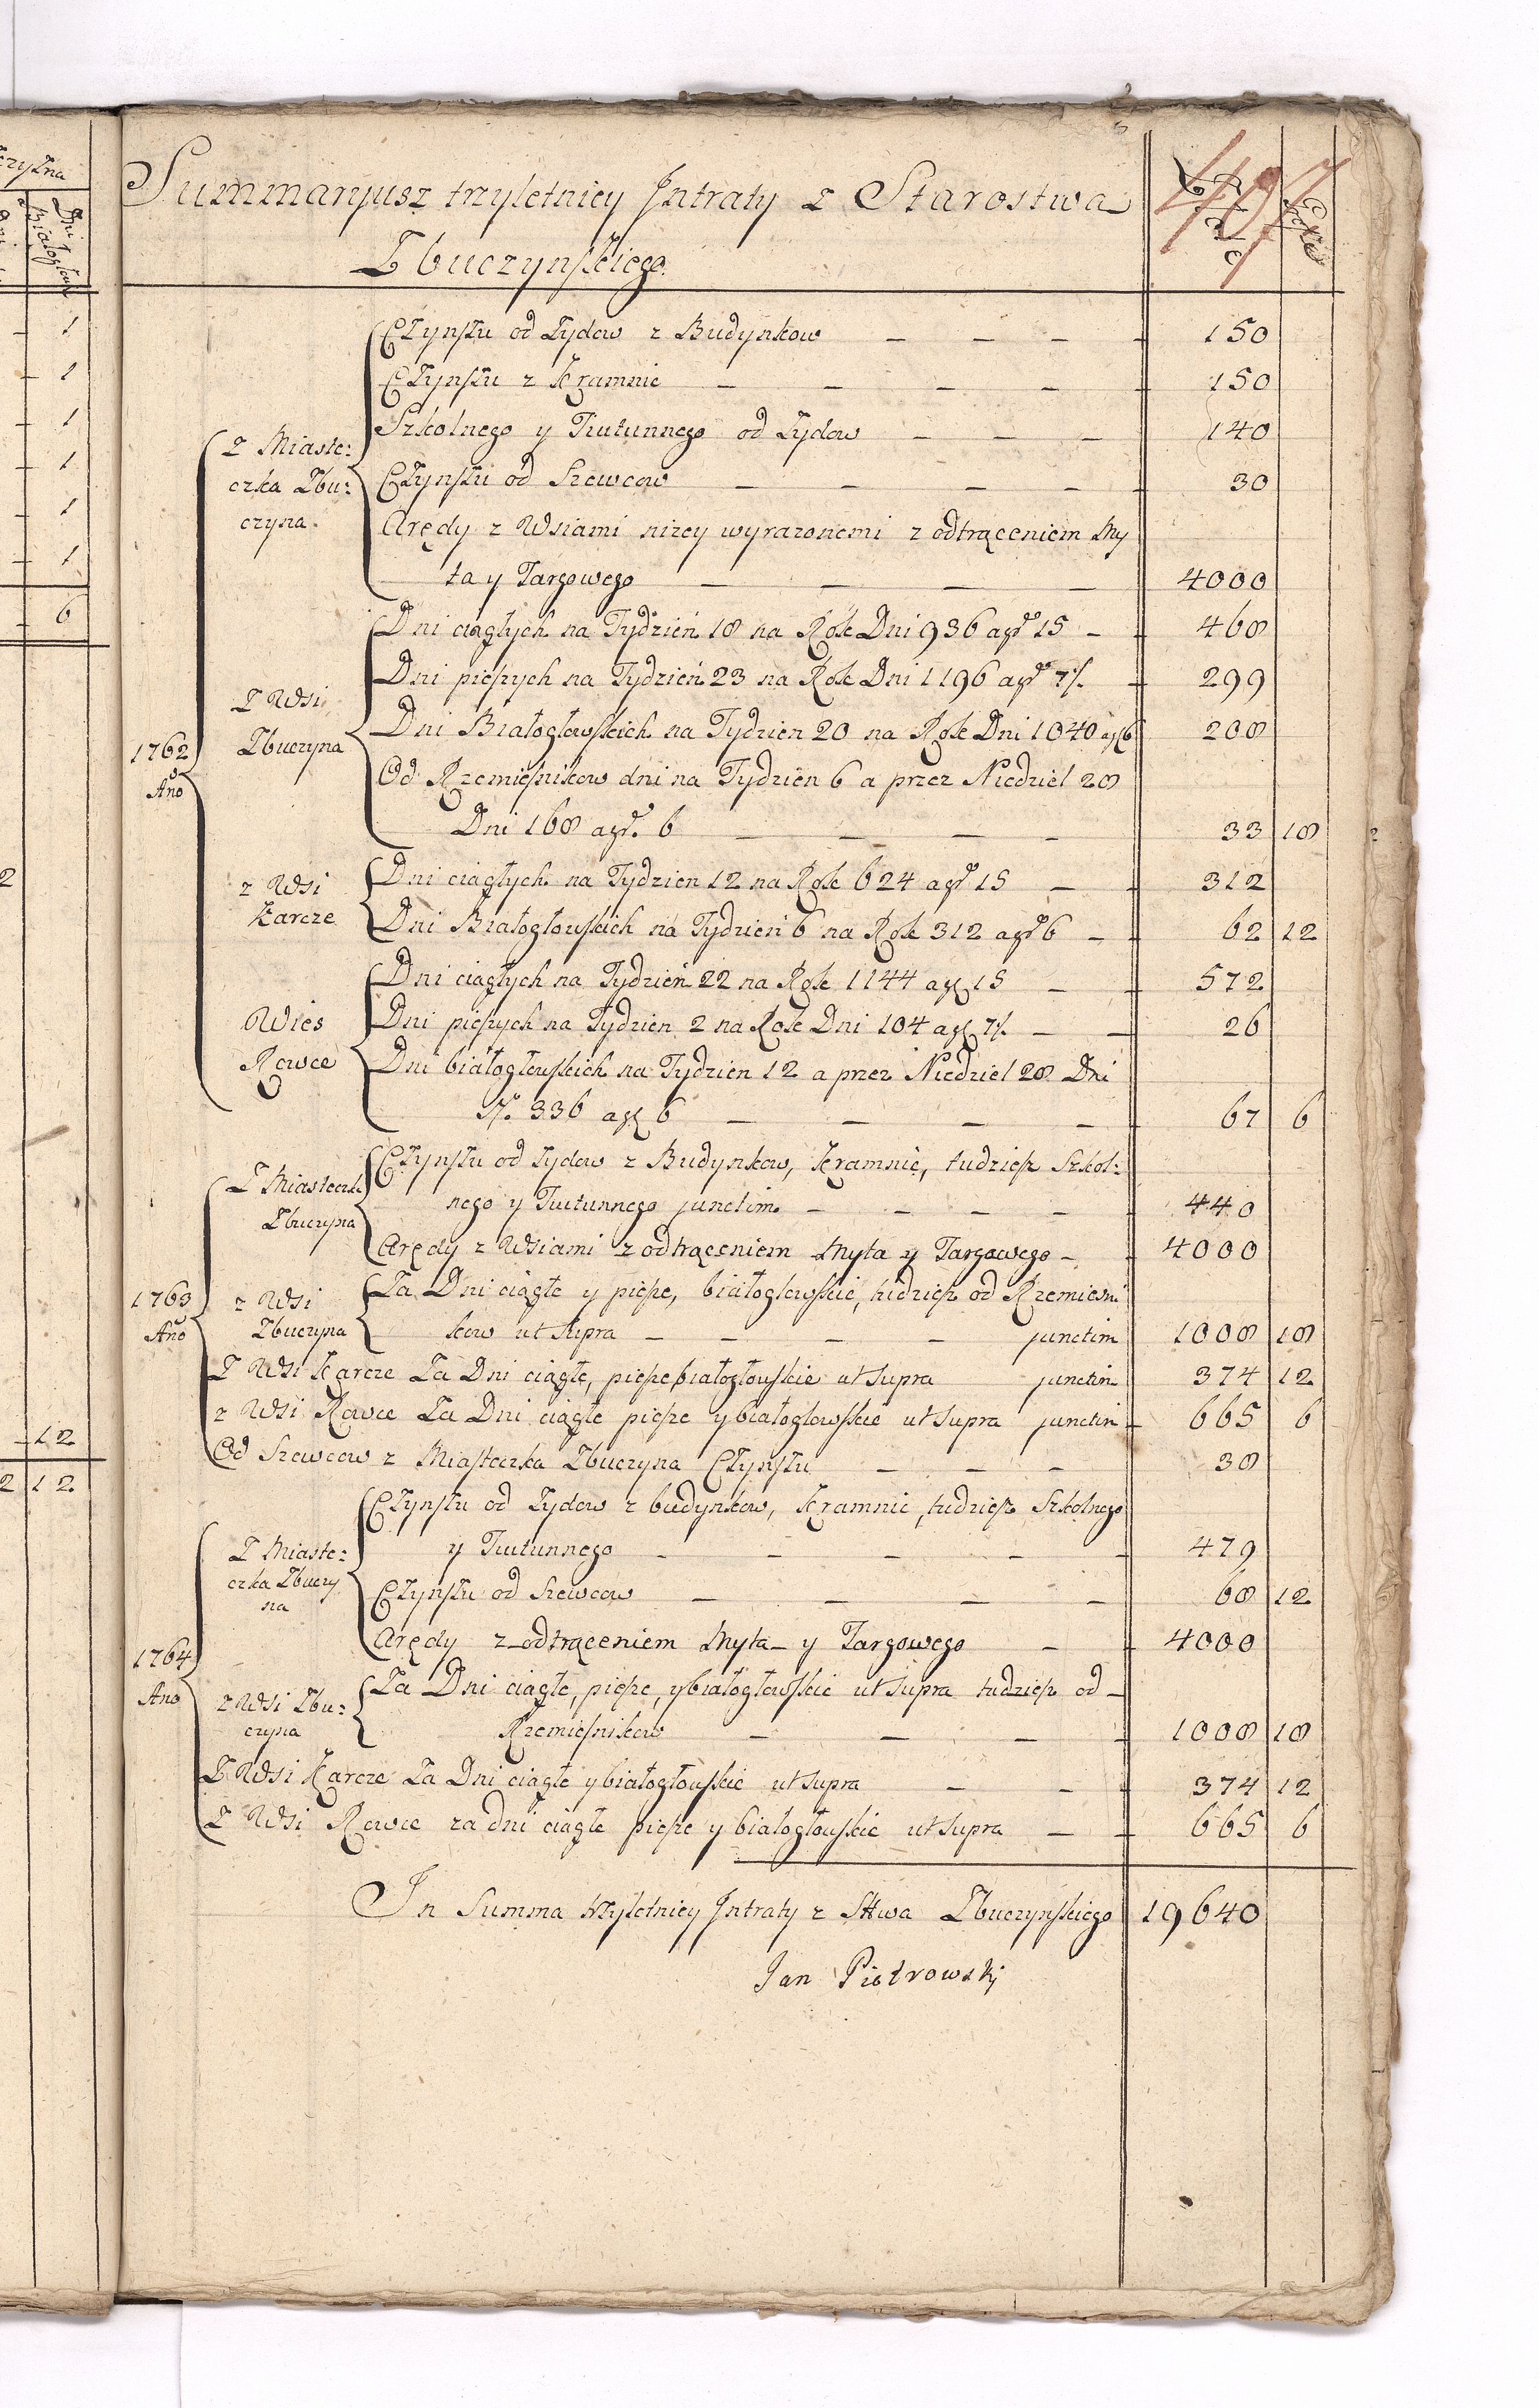 czyzna
Dni
Białogłow
1
1
1
1
1
1
6
2
12
2 12
Summaryusz trzyletniey Jntraty z Starostwa
Zbuczynskiego.
407
Złote
Grosze
1762
Año
Z Miaste:
czka Zbu:
czyna.
Czynszu od Zydow z Budynkow — — — 150
Czynszu z Kramnic — — — — 150
Szkolnego y Tiutunnego od Zydow — — — 140
Czynszu od Szewcow — — — — 30
Arędy z Wsiami nizey wyrazonemi z odtrąceniem My
ta y Targowego — — — — 4000
Z Wsi
Zbuczyna
Dni ciągłych na Tydzień 18 na Rok Dni 936 a gr 15 — 468
Dni pieszych na Tydzień 23 na Rok Dni 1196 a gr 7/. 299
Dni Białogłowskich na Tydzien 20 na Rok Dni 1040 a g 6 208
Od Rzemiesnikow dni na Tydzien 6 a przez Niedziel 28
Dni 168 a gr. 6 — — — — 33 18
z Wsi
Karcze
Dni ciągłych na Tydzien 12 na Rok 624 a gr 15 — 312
Dni Białogłowskich na Tydzień 6 na Rok 312 a gr 6 — 62 12
Wies
Rowce
Dni ciągłych na Tydzień 22 na Rok 1144 a gr 15 — 572
Dni pieszych na Tydzien 2 na Rok Dni 104 a gr 7/. — — 26
Dni białogłowskich na Tydzien 12 a przez Niedziel 28 Dni
No. 336 a gr 6 — — — — 67 6
1763
Año
Z Miasteczk
Zbuczyna
Czynszu od Zydow z Budynkow, Kramnic, tudziesz Szkol:
nego y Tiutunnego junctim — — — — 440
Arędy z Wsiami z odtrąceniem Myta y Targowego — 4000
z Wsi
Zbuczyna
Za Dni ciągłe y piesze, białogłowskie, tudziesz od Rzemiesni
kow ut supra — — — — junctim 1008 18
Z Wsi Karcze Za Dni ciągłe, piesze białogłowskie ut supra junctim 374 12
z Wsi Rowce Za Dni ciągłe piesze y białogłowskie ut supra junctim 665 6
Od Szewcow z Miasteczka Zbuczyna Czynszu — — — 38
1764
Ano
Z Miaste:
czka Zbuczy
na
Czynszu od Zydow z budynkow, Kramnic, tudziesz Szkolnego
y Tiutunnego — — — — — 479
Czynszu od Szewcow — — — — 68 12
Arędy z odtrąceniem Myta y Targowego — 4000
z Wsi Zbu:
czyna
Za Dni ciągłe, piesze, y białogłowskie ut supra tudziesz od
Rzemiesnikow — — — — 1008 18
Z Wsi Karcze Za Dni ciągłe y białogłowskie ut supra — — 374 12
Z Wsi Rowce za dni ciągłe piesze y białogłowskie ut supra — 665 6
In Summa trzyletniey Jntraty z Sttwa Zbuczynskiego 19640
Jan Piotrowski